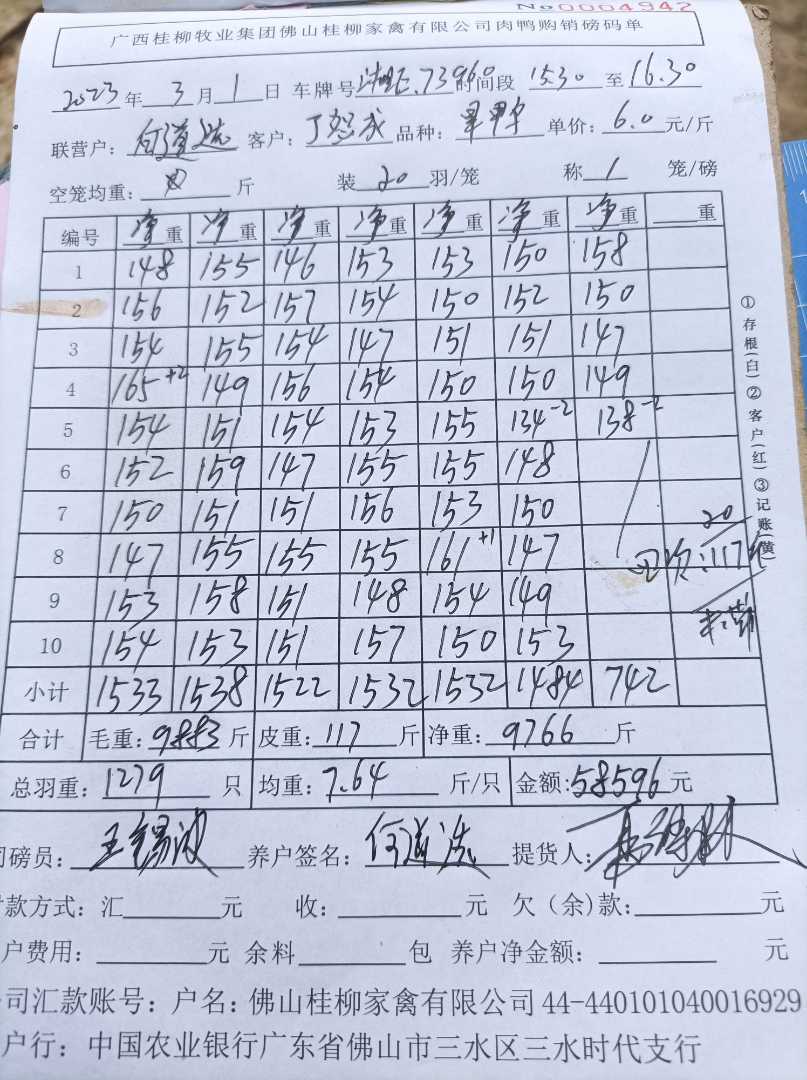 No 0004942
广西桂柳牧业集团佛山桂柳家禽有限公司肉鸭购销磅码单
2023 年 3 月 1 日 车牌号 73960 时间段 15.30 至 16.30
联营户: 何道选 客户: 丁 成 品种: 单价: 6.0 元/斤
空笼均重: 斤 装 20 羽/笼 称 1 笼/磅
编号 净重 净重 净重 净重 净重 净重 净重 重
1 148 155 146 153 153 150 158
2 156 152 157 154 150 152 150
3 154 155 154 147 151 151 147
4 165+2 149 156 154 150 150 149
5 154 151 154 153 155 134-2 138-2
6 152 159 147 155 155 148
7 150 151 151 156 153 150
8 147 155 155 155 161+1 147
9 153 158 151 148 154 149
10 154 153 151 157 150 153
小计 1533 1538 1522 1532 1532 1484 742
20
117
合计 毛重: 9883 斤 皮重: 117 斤 净重: 9766 斤
总羽重: 1279 只 均重: 7.64 斤/只 金额: 58596 元
司磅员: 王锡波 养户签名: 何道选 提货人:
付款方式: 汇 元 收: 元 欠(余)款: 元
户费用: 元 余料 包 养户净金额: 元
公司汇款账号: 户名: 佛山桂柳家禽有限公司 44-440101040016929
户行: 中国农业银行广东省佛山市三水区三水时代支行
①存根(白)②客户(红)③记账(黄)